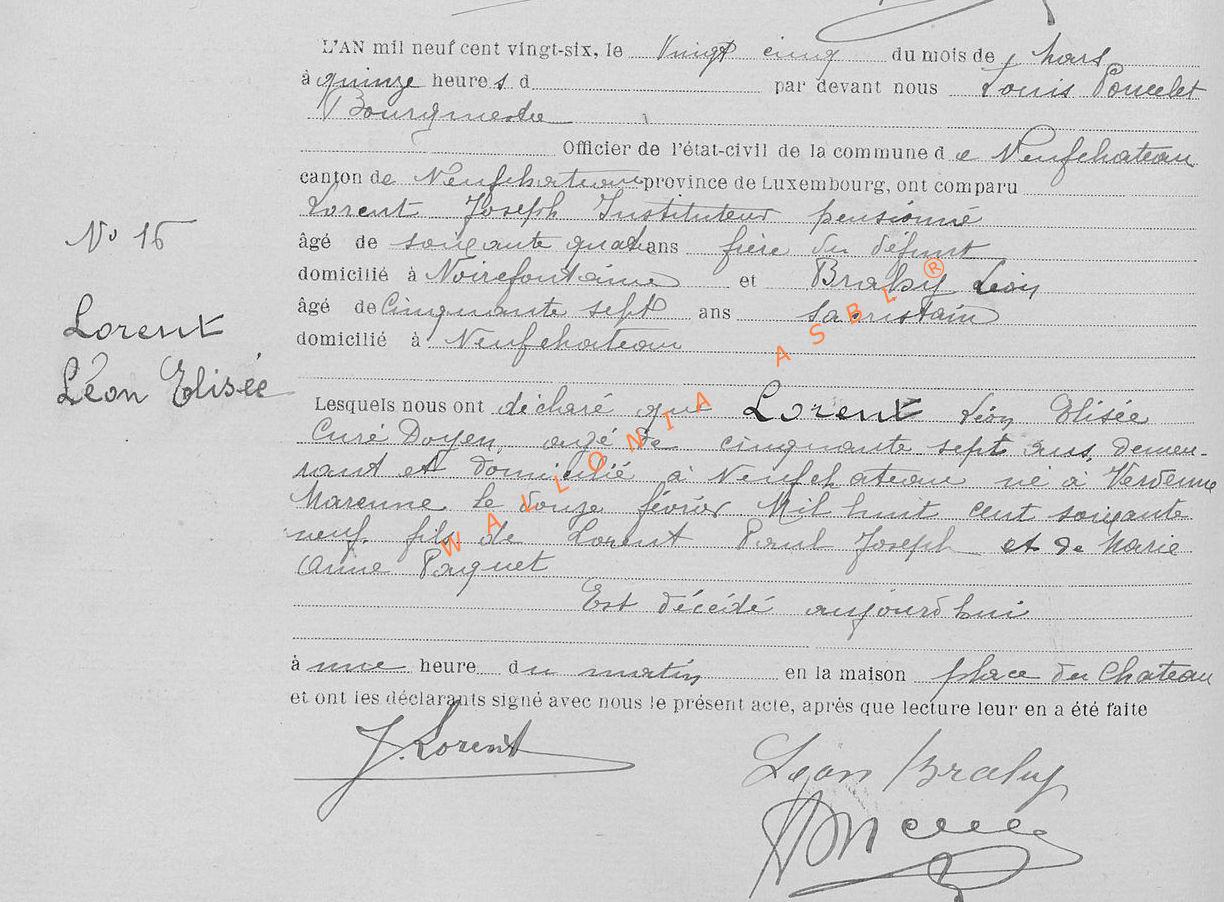 L'AN mil neuf cent vingt-six, le Vingt cinq du mois de mars
à quinze heures d par devant nous Louis Poncelet
Bourgmestre
Officier de l'état-civil de la commune de Neufchateau
canton de Neufchateau province de Luxembourg, ont comparu
Lorent Joseph Instituteur pensionné
âgé de soixante quatre ans frère du défunt
domicilié à Noirefontaine et Brahy Léon
âgé de Cinquante sept ans sacristain
domicilié à Neufchateau
No 16
Lorent
Léon Elisée
Lesquels nous ont déclaré que Lorent Léon Elisée
Curé Doyen, augé de cinquante sept ans, demeu-
rant et domicilié à Neufchateau né à Verdenne
Marenne le douze février Mil huit cent soixante
neuf, fils de Lorent Paul Joseph et de Marie
Anne Paquet
Est décédé aujourd'hui
à une heure du matin en la maison place du Chateau
et ont les déclarants signé avec nous le présent acte, après que lecture leur en a été faite
J. Lorent
Léon Brahy
WALLONIA ASBL ®